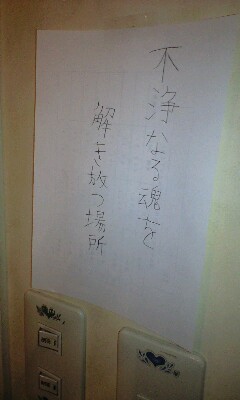 不浄なる魂を
解き放つ場所